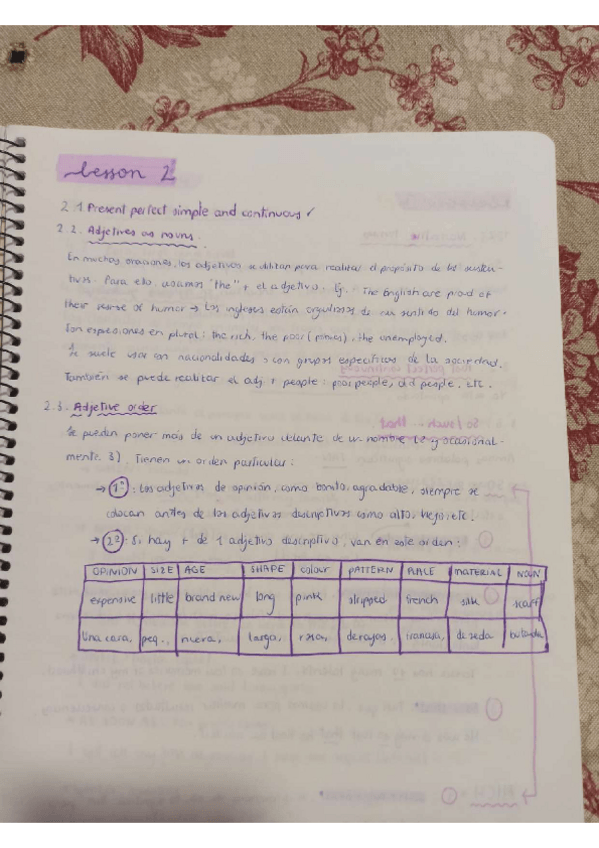 Lesson 2
2.1 Present perfect simple and continuous ✓
2.2. Adjectives as nouns.
En muchas oraciones, los adjetivos se utilitan para realitar el propósito de los sustan-
tivos. Para ello, usamos "the" + el adjetivo. Ej. The English are proud of
their sense of humor → Los ingleses están orgullosos de su sentido del humor.
Son expresiones en plural: the rich, the poor (pobres), the unemployed.
Se suele usar con nacionalidades y con grupos específicos de la sociedad.
También se puede realitar el adj + people: poor people, old people, etc.
2.3. Adjetive order
Se pueden poner más de un adjetivo delante de un nombre (2 y ocasional-
mente 3). Tienen un orden particular:
→ 1º: Los adjetivos de opinión, como bonito, agradable, siempre se
colocan antes de los adjetivos descriptivos como alto, viejo, etc.
→ 2º: Si hay + de 1 adjetivo descriptivo, van en este orden:
OPINION SIZE AGE SHAPE colour PATTERN PLACE MATERIAL NOUN
expensive little brand new long pink stripped french silk scarf
Una cara, peq., nueva, larga, rosa, de rayas, francesa, de seda bufanda